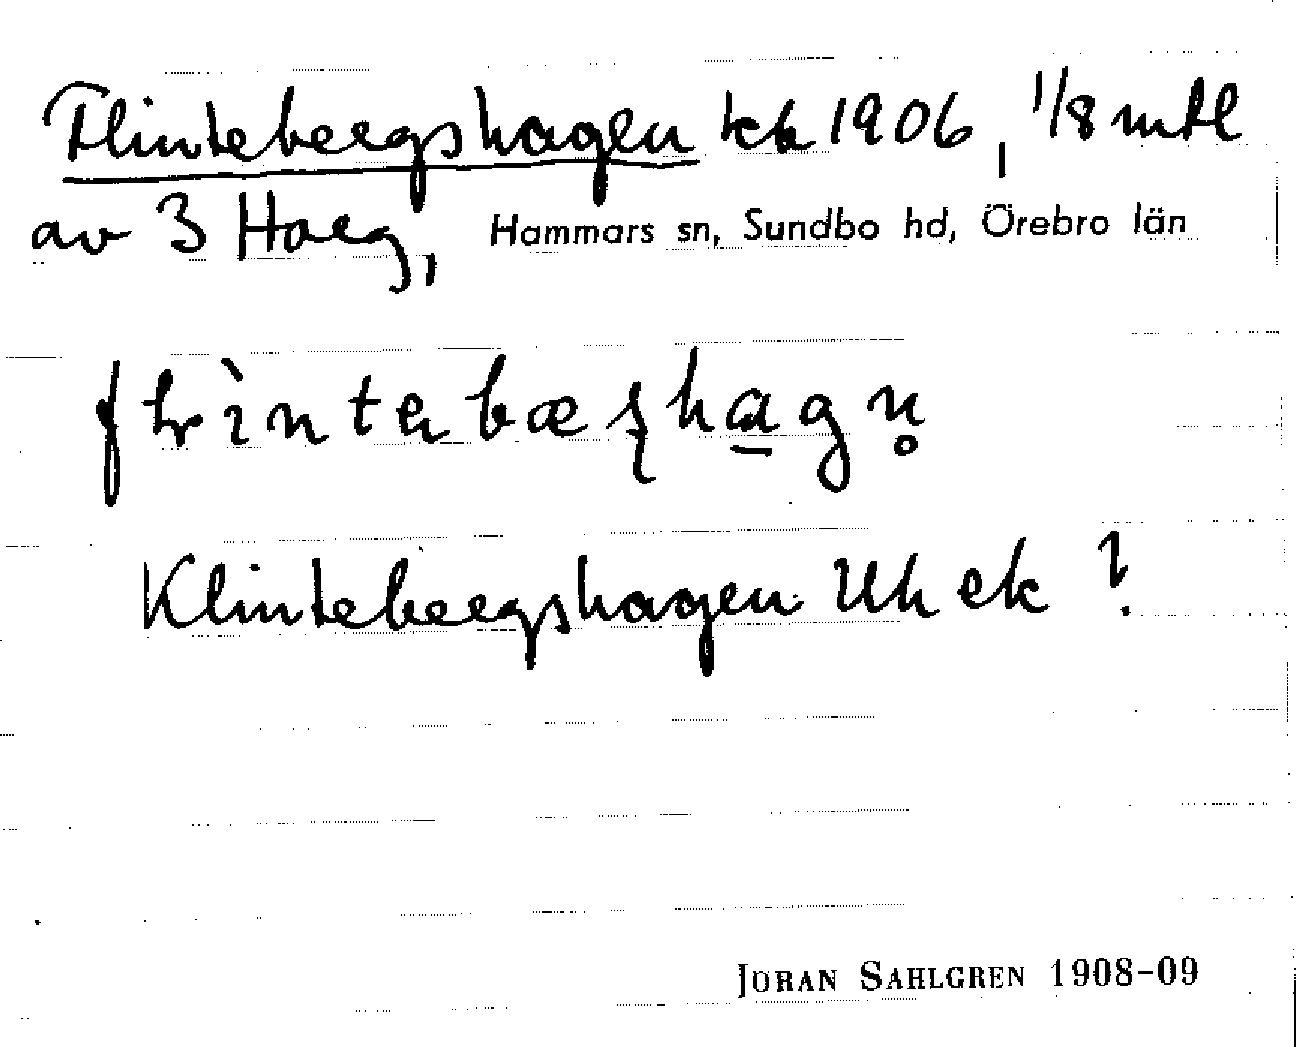 Flintebergshagen tck 1906, 1/8 mtl
av 3 Harg, Hammars sn, Sundbo hd, Örebro län
Klintebergshagen Uh ek ?
JÖRAN SAHLGREN 1908-09